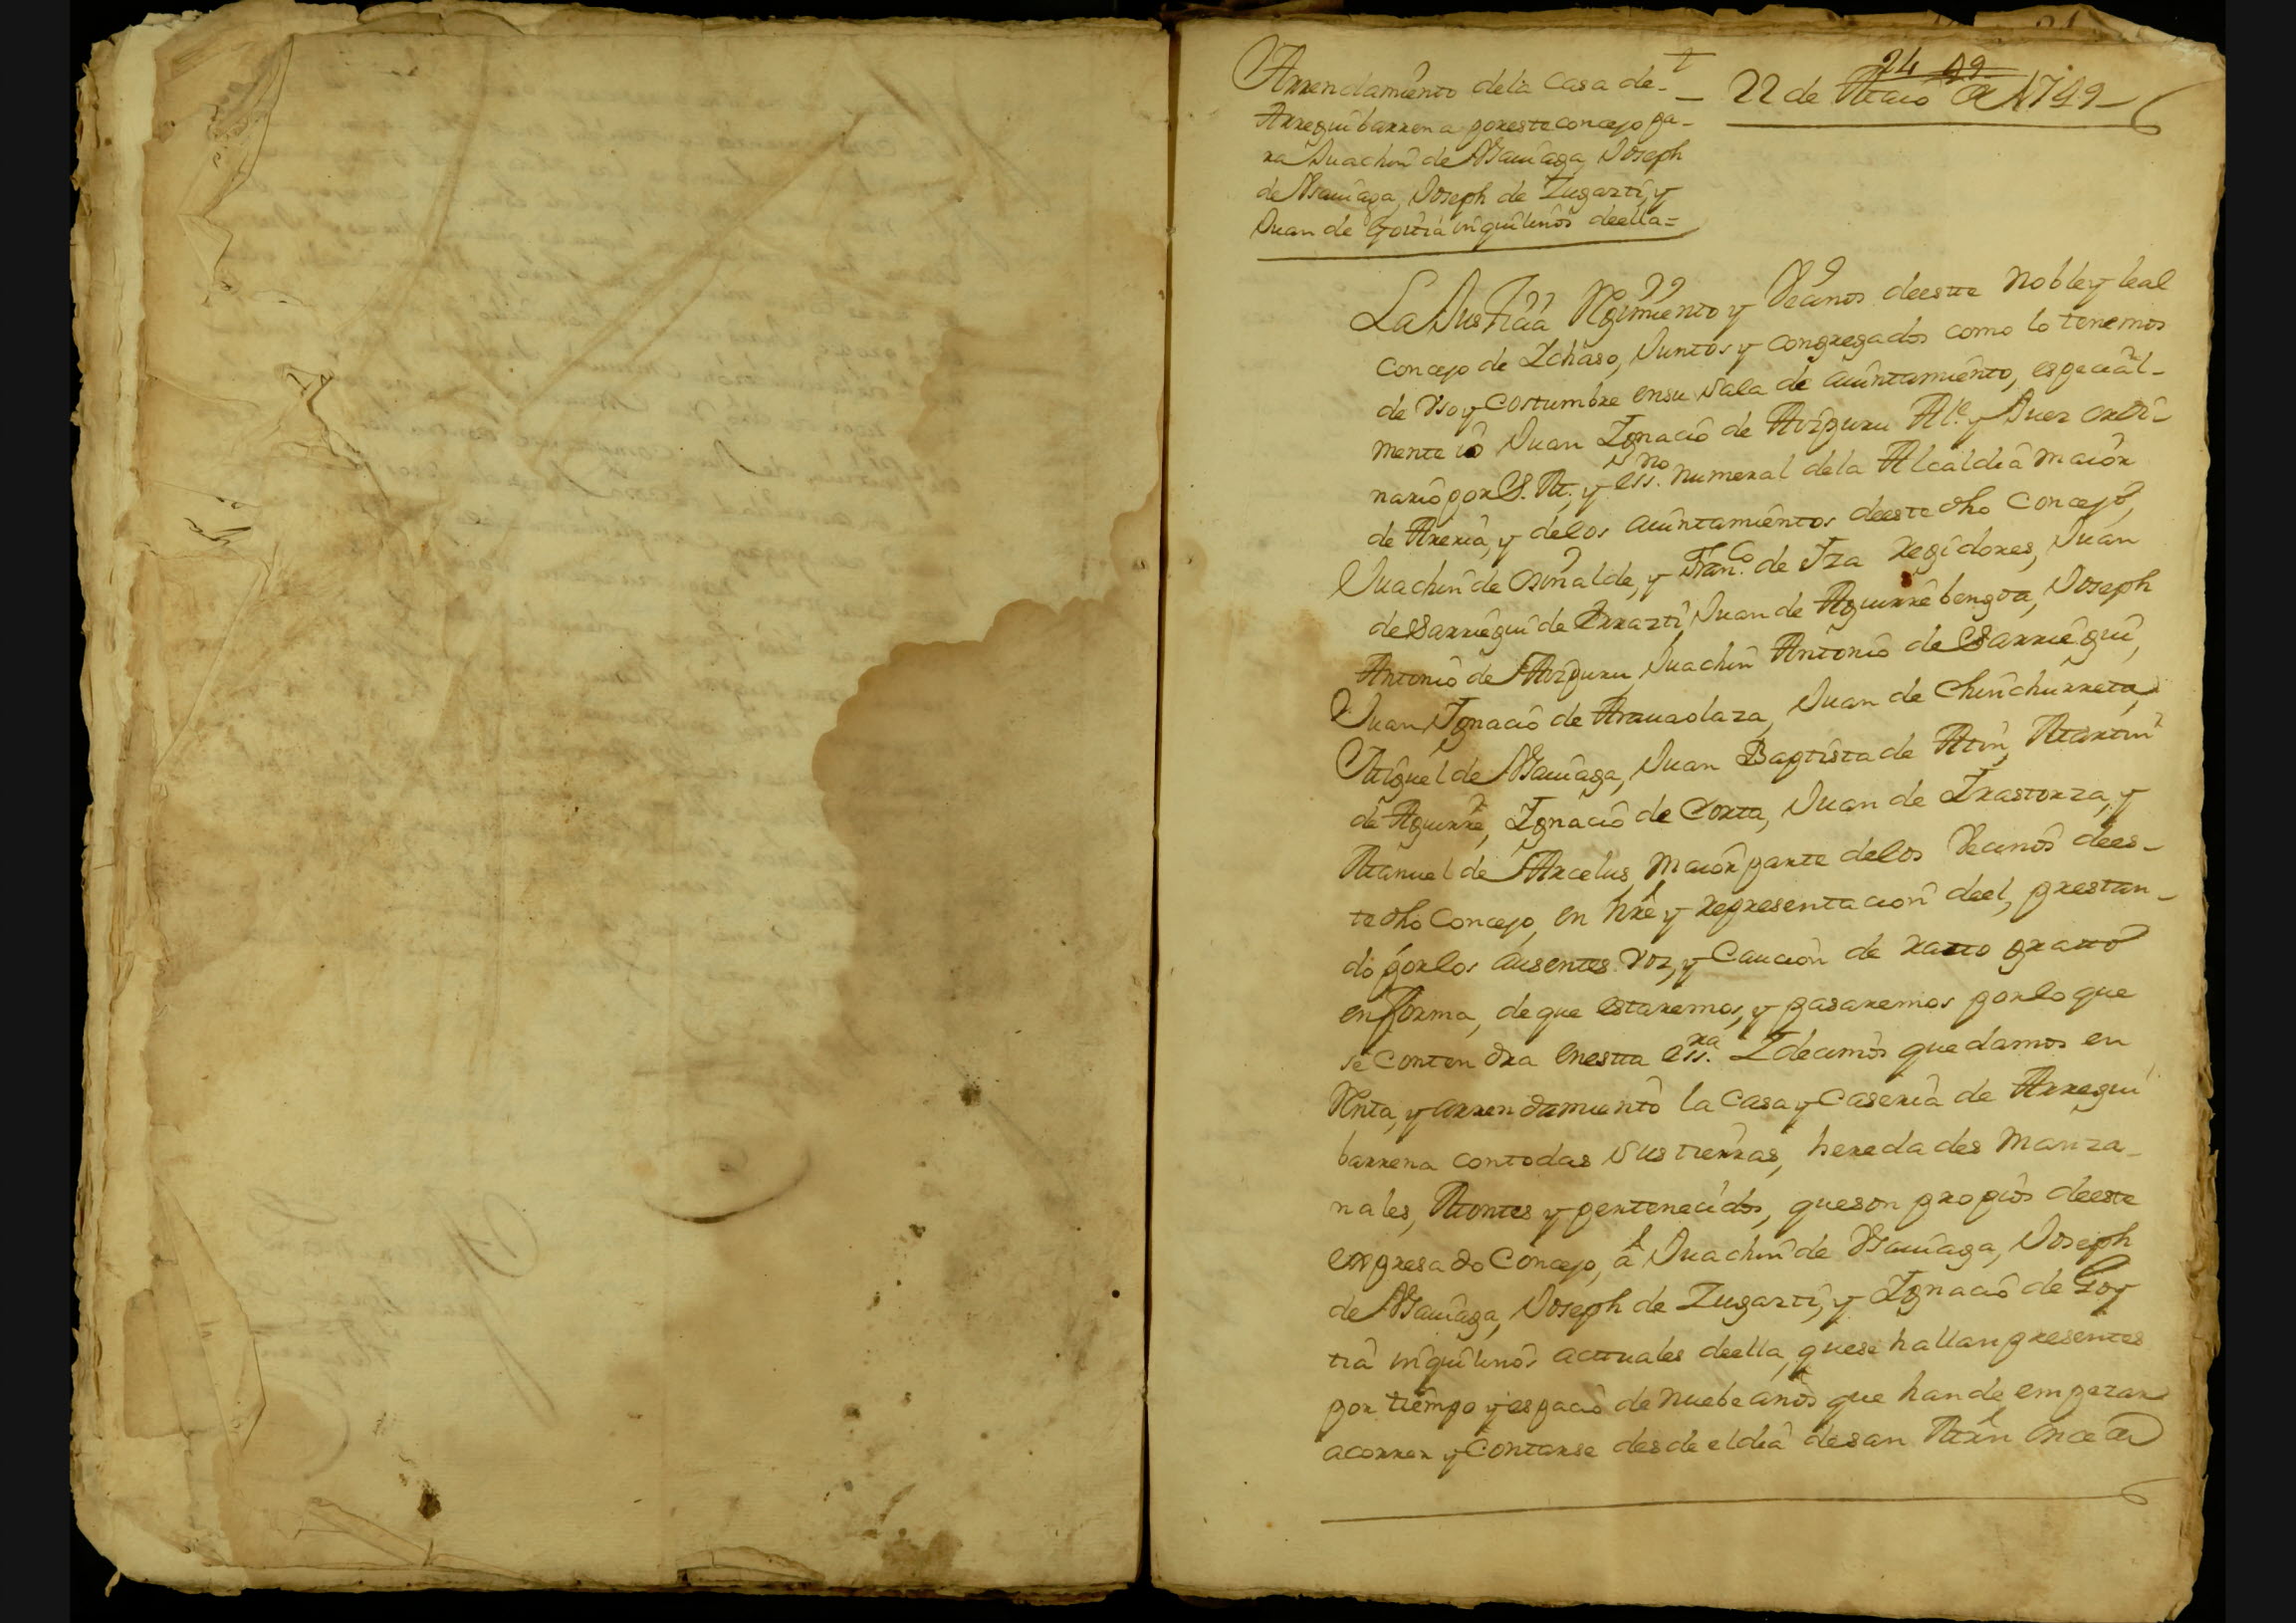 Arrendamiento dela Casa de
Arreguibarrena por este concejo pa-
ra Juachin de Usauiaga, Joseph
de Usauiaga, Joseph de Zugazti, y
Juan de Goitia inquilinos deella=
22 de Maio de 1749
La Justicia Regimiento y Vecinos deestte Noble y leal
Concejo de Ichaso, Juntos y congregados como lo tenemos
de Vso y Costumbre ensu Sala de aiuntamiento, especial-
mente io Juan Ignacio de Aizpuru Al.e y Juez ordi-
nario por S. M. y ess.no numeral dela Alcaldia maior
de Areria, y delos aiuntamientos deeste dho Concejo,
Juachin de Osinalde, y Fran.co de Iza regidores, Juan
de Sarriegui de Errazti, Juan de Aguirrebengoa, Joseph
Antonio de Aizpuru, Juachin Antonio de Sarriegui,
Juan Ignacio de Arauaolaza, Juan de Chinchurreta,
Miguel de Usauiaga, Juan Baptista de Atin, Martin
de Aguirre, Ignacio de Corta, Juan de Irastorza, y
Manuel de Arcelus, maior parte delos Vecinos dees-
te dho Concejo, en nre y representacion deel, prestan-
do por los ausentes voz, y Caucion de ratto gratto
en forma, de que estaremos, y pasaremos por lo que
se contendra enestta ess.ra Idecimos que damos en
Renta, y arrendamiento la Casa y Caseria de Arregui
barrena contodas sus tierras, heredades manza-
nales, Montes y pertenecidos, queson propios deeste
expresado Concejo, a Juachin de Usauiaga, Joseph
de Usauiaga, Joseph de Zugazti, y Ignacio de Goy
tia inquilinos acttuales deella, quese hallan presentes
por tiempo y espacio de nuebe años que han de empezar
acorrer y Contarse desde eldia desan Mrn once de